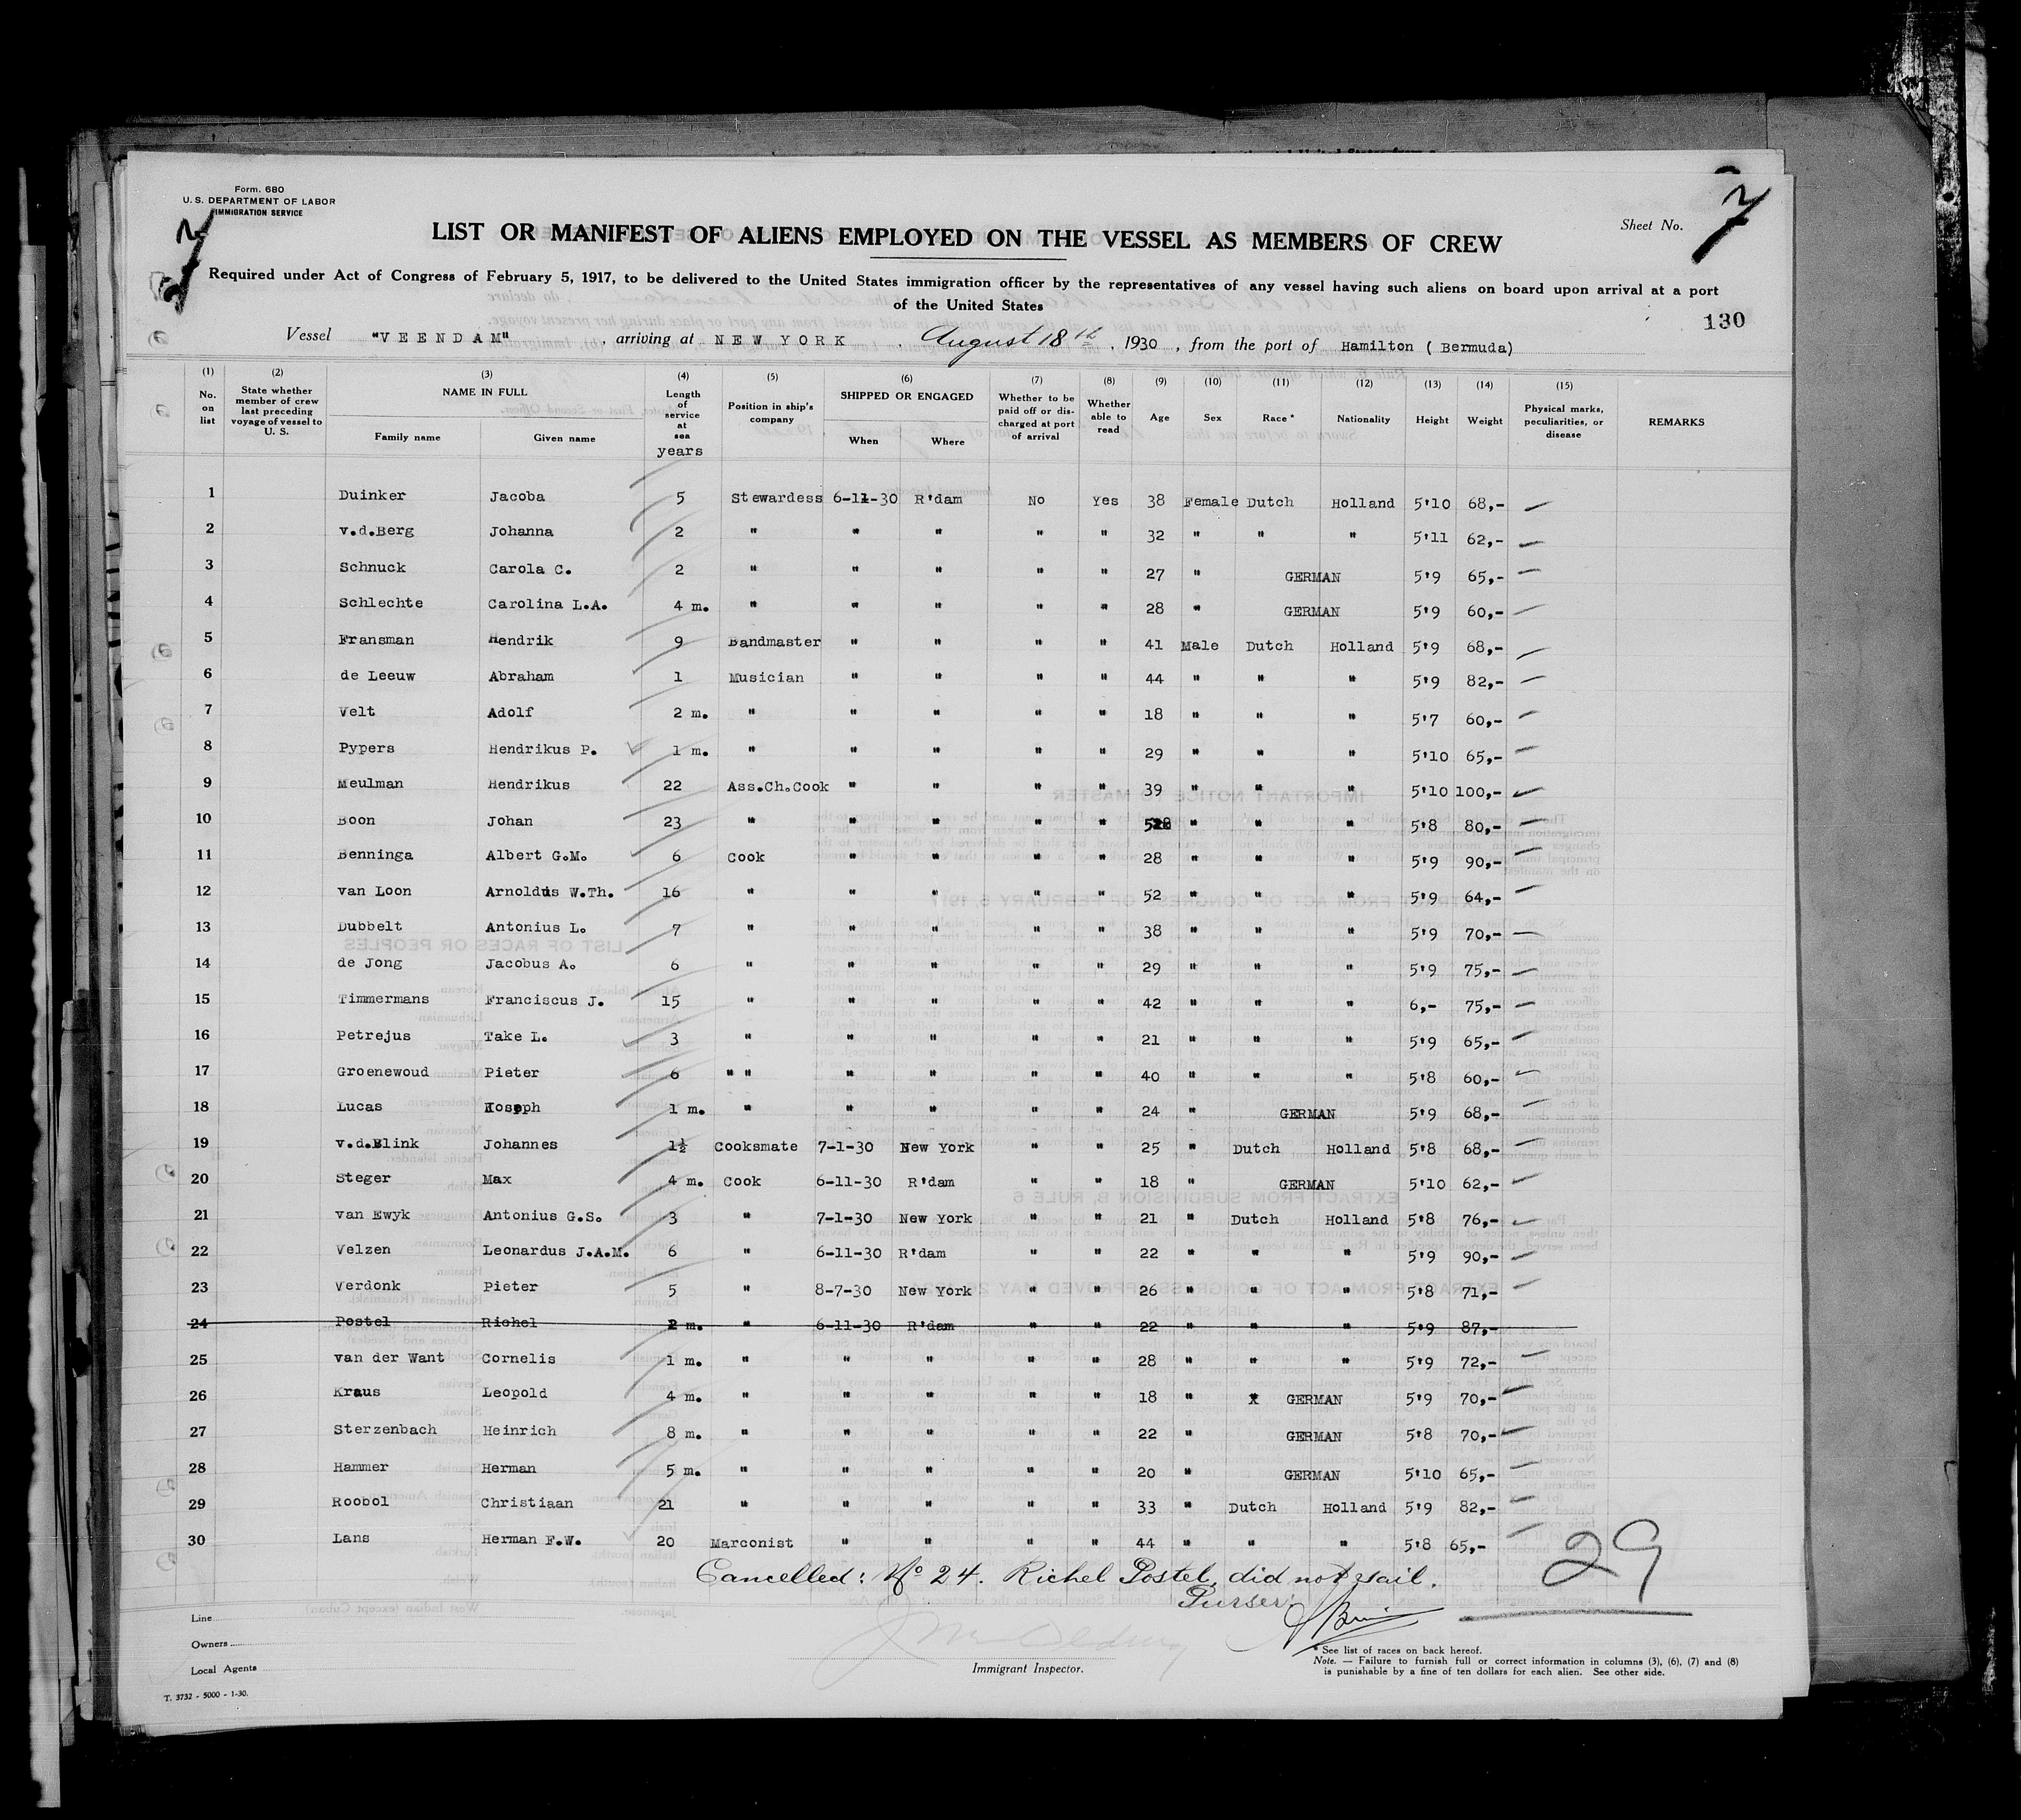 Form. 680
U. S. DEPARTMENT OF LABOR
IMMIGRATION SERVICE
Sheet No. 7
7
LIST OR MANIFEST OF ALIENS EMPLOYED ON THE VESSEL AS MEMBERS OF CREW
Required under Act of Congress of February 5, 1917, to be delivered to the United States immigration officer by the representatives of any vessel having such aliens on board upon arrival at a port
of the United States
130
Vessel "VEENDAM" , arriving at NEW YORK , August 18th , 1930 , from the port of Hamilton ( Bermuda)
(1) No. on list (2) State whether member of crew last preceding voyage of vessel to U. S. (3) NAME IN FULL Family name Given name (4) Length of service at sea years (5) Position in ship's company (6) SHIPPED OR ENGAGED When Where (7) Whether to be paid off or discharged at port of arrival (8) Whether able to read (9) Age (10) Sex (11) Race * (12) Nationality (13) Height (14) Weight (15) Physical marks, peculiarities, or disease REMARKS
1 Duinker Jacoba 5 Stewardess 6-11-30 R'dam No Yes 38 Female Dutch Holland 5'10 68,-
2 v.d.Berg Johanna 2 " " " " " 32 " " " 5'11 62,-
3 Schnuck Carola C. 2 " " " " " 27 " GERMAN 5'9 65,-
4 Schlechte Carolina L.A. 4 m. " " " " " 28 " GERMAN 5'9 60,-
5 Fransman Hendrik 9 Bandmaster " " " " 41 Male Dutch Holland 5'9 68,-
6 de Leeuw Abraham 1 Musician " " " " 44 " " " 5'9 82,-
7 Velt Adolf 2 m. " " " " " 18 " " " 5'7 60,-
8 Pypers Hendrikus P. 1 m. " " " " " 29 " " " 5'10 65,-
9 Meulman Hendrikus 22 Ass.Ch.Cook " " " " 39 " " " 5'10 100,-
10 Boon Johan 23 " " " " " " " " 5'8 80,-
11 Benninga Albert G.M. 6 Cook " " " " 28 " " " 5'9 90,-
12 van Loon Arnoldus W.Th. 16 " " " " " 52 " " " 5'9 64,-
13 Dubbelt Antonius L. 7 " " " " " 38 " " " 5'9 70,-
14 de Jong Jacobus A. 6 " " " " " 29 " " " 5'9 75,-
15 Timmermans Franciscus J. 15 " " " " " 42 " " " 6,- 75,-
16 Petrejus Take L. 3 " " " " " 21 " " " 5'9 65,-
17 Groenewoud Pieter 6 " " " " " " 40 " " " 5'8 60,-
18 Lucas Joseph 1 m. " " " " " 24 " GERMAN 5'9 68,-
19 v.d.Blink Johannes 1½ Cooksmate 7-1-30 New York " " 25 " Dutch Holland 5'8 68,-
20 Steger Max 4 m. Cook 6-11-30 R'dam " " 18 " GERMAN 5'10 62,-
21 van Ewyk Antonius G.S. 3 " 7-1-30 New York " " 21 " Dutch Holland 5'8 76,-
22 Velzen Leonardus J.A.M. 6 " 6-11-30 R'dam " " 22 " " " 5'9 90,-
23 Verdonk Pieter 5 " 8-7-30 New York " " 26 " " " 5'8 71,-
24 Postel Richel 2 m. " 6-11-30 R'dam " " 22 " " " 5'9 87,-
25 van der Want Cornelis 1 m. " " " " " 28 " " " 5'9 72,-
26 Kraus Leopold 4 m. " " " " " 18 " x GERMAN 5'9 70,-
27 Sterzenbach Heinrich 8 m. " " " " " 22 " GERMAN 5'8 70,-
28 Hammer Herman 5 m. " " " " " 20 " GERMAN 5'10 65,-
29 Roobol Christiaan 21 " " " " " 33 " Dutch Holland 5'9 82,-
30 Lans Herman F.W. 20 Marconist " " " " 44 " " " 5'8 65,-
Cancelled: No 24. Richel Postel, did not sail.
29
Purser:
Line
Owners
Local Agents
Immigrant Inspector.
* See list of races on back hereof.
Note. — Failure to furnish full or correct information in columns (3), (6), (7) and (8)
is punishable by a fine of ten dollars for each alien. See other side.
T. 3732 - 5000 - 1-30.